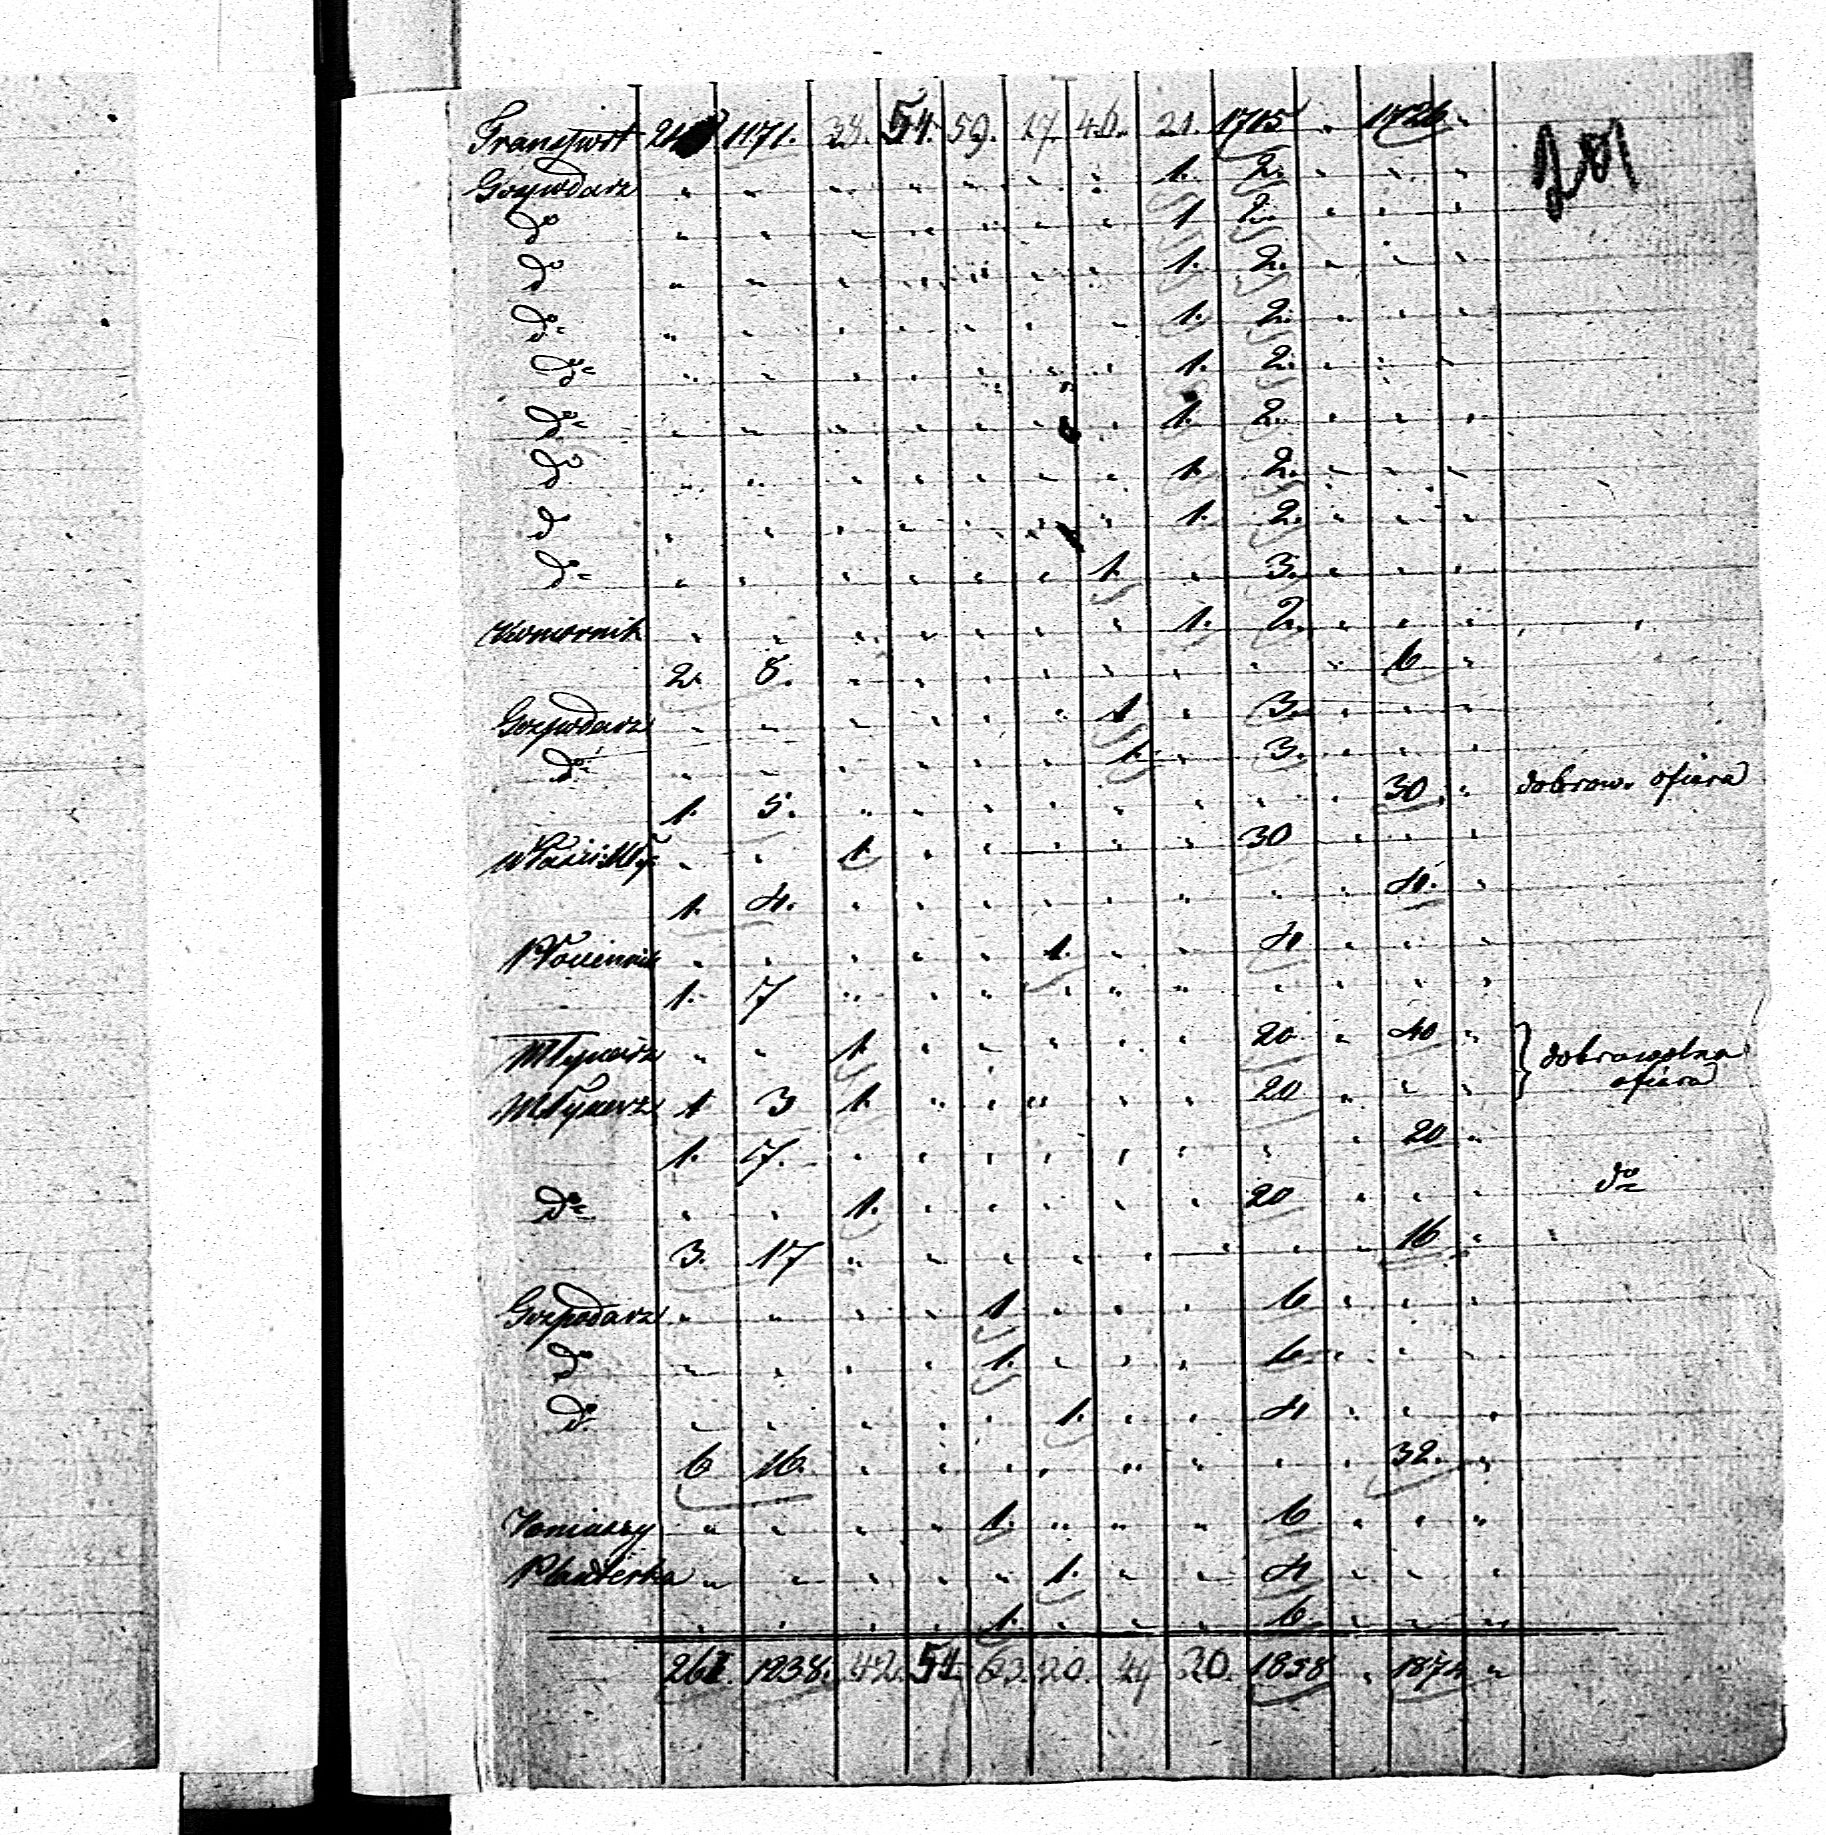 Transport 1171. 38. 54. 59. 17. 46. 21. 1705 " 1726 "
201
Gospodarz " " " " " " " 1. 2. " " "
do " " " " " " " 1 2. " " "
do " " " " " " " 1. 2. " " "
do " " " " " " " 1. 2. " " "
do " " " " " " " 1. 2. " " "
do " " " " " " " 1. 2. " " "
do " " " " " " " 1. 2. " " "
do " " " " " " " 1. 2. " " "
do " " " " " " 1. " 3. " " "
Komornik " " " " " " " 1. 2. " " "
2. 8. " " " " " " " " 6 "
Gospodarz " " " " " " 1 " 3. " " "
do " " " " " " 1. " 3. " " "
1. 5. " " " " " " " " 30 " dobrow. ofiara
" " 1. " " " " " 30 " " "
1. 4. " " " " " " " " 4. "
" " " " " 1. " " 4 " " "
1. 7 " " " " " " " " " "
Młynarz " " 1. " " " " " 20 " 40 " } dobrowolna
Młynarz 1 3 1. " " " " " 20 " " " ofiara
1. 7. " " " " " " " " 20 "
do " " 1. " " " " " 20 " " " do
3. 17 " " " " " " " " 16 "
Gospodarz " " " " 1 " " " 6 " " "
do " " " " 1. " " " 6. " " "
do " " " " " 1. " " 4 " " "
6 16. " " " " " " " " 32. "
" " " " 1. " " " 6 " " "
" " " " " 1. " " 4 " " "
" " " " 1. " " " 6. " " "
1238. 42. 54 63. 20. 49 30. 1858 " 1874 "